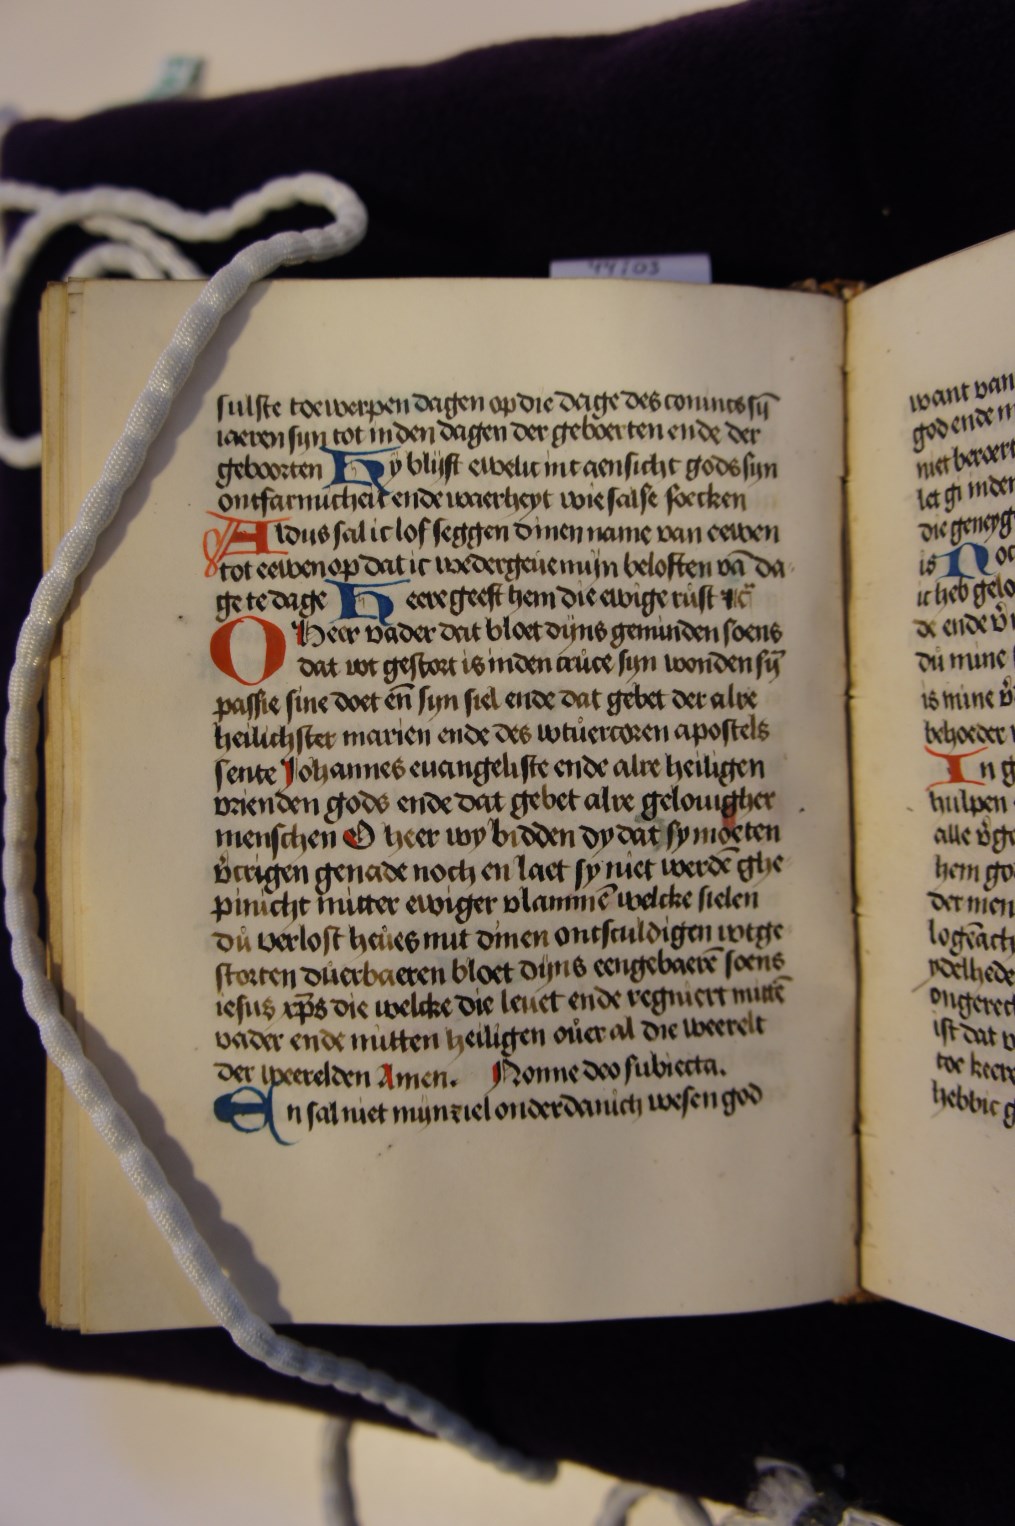 44/03
sulste toewerpen dagen op die dage des conincs sȳ
iaeren sijn tot inden dagen der geboerten ende der
geboorten Hy blijft ewelic int aensicht gods sijn
ontfarmicheit ende waerheyt wie salse soecken
Aldus sal ic lof seggen dinen name van eewen
tot eewen op dat ic wedergeue mijn beloften vā da
ge te dage Heere geeft hem die ewige rust
O Heer vader dat bloet dijns geminden soens
dat wt gestort is inden cruce sijn wonden sȳ
passie sine doet eñ sijn siel ende dat gebet der alre
heilichster marien ende des wtuercoren apostels
sente Johannes euangeliste ende alre heiligen
vrienden gods ende dat gebet alre gelouigher
menschen O heer wy bidden dy dat sy moeten
v̄crigen genade noch en laet sy niet werdē ghe
pinicht mitter ewiger vlammē welcke sielen
du verlost heues mit dinen ontsculdigen wtge
storten duerbaeren bloet dijns eengebaerē soens
iesus xp̄s die welcke die leuet ende regniert mittē
vader ende mitten heiligen ouer al die weerelt
der weerelden Amen. Nonne deo subiecta.
En sal niet mijn ziel onderdanich wesen god
want van
god ende m
niet beroert
let gi inden
die geneyg
is Noc
ic heb gelo
de ende v̄
du mine
is mine v̄
behoeder
In g
hulpen
alle v̄ge
hem go
der men
logēach
ydelhede
ongerech
ist dat
toe keer
hebbic g